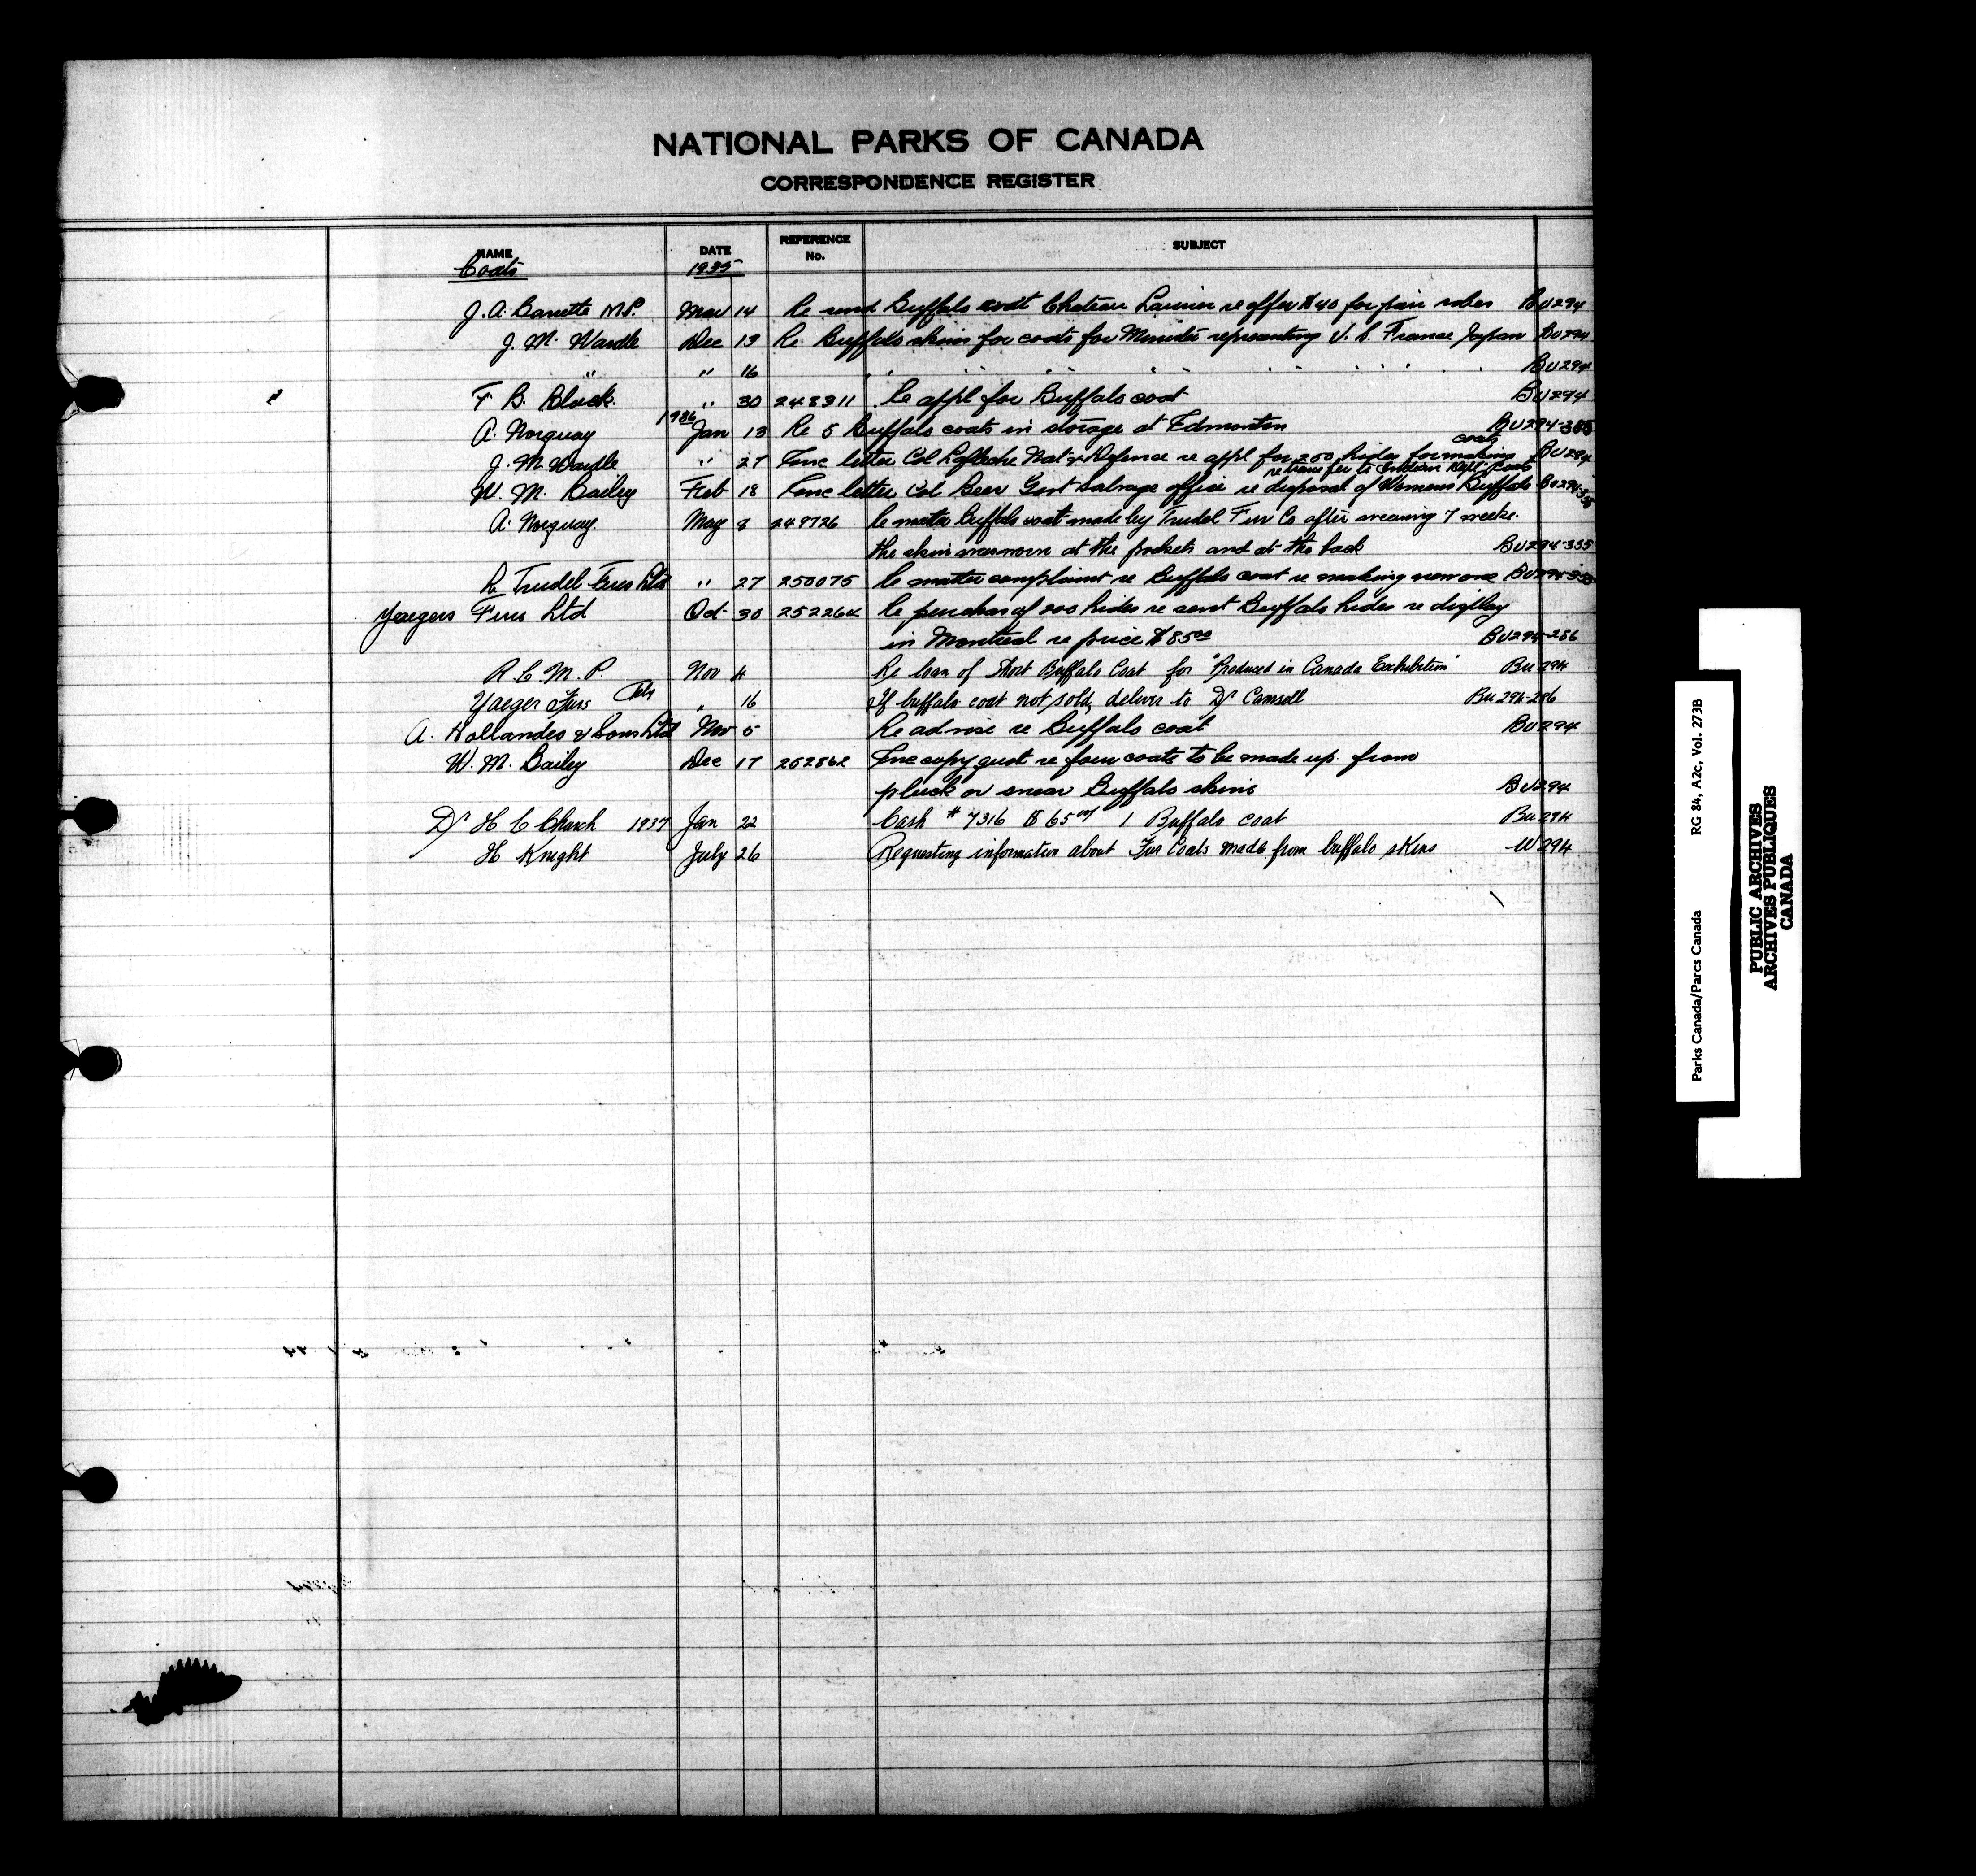 NATIONAL PARKS OF CANADA
CORRESPONDENCE REGISTER
NAME DATE REFERENCE No. SUBJECT
Coats 1935
J. A. Barrette M.P. Mar 14 Re send Buffalo coat Chateau Laurier re offer $40 for pair robes BU294
J. M. Wardle Dec 13 Re Buffalo skins for coats for Minister representing U. S. France Japan BU294
" " 16 BU294
F B. Black " 30 248311 Re appl for Buffalo coat BU294
A. Norquay 1936 Jan 13 Re 5 Buffalo coats in storage at Edmonton BU294-355
coats
J. M. Wardle " 27 Enc letter Col Lafleche Nat Defence re appl for 250 hides for making BU294
re transfer to Indian Dept coats
W. M. Bailey Feb 18 Enc letter Col Beer Govt Salvage office re disposal of Womens Buffalo BU294-355
A. Norquay May 8 249726 Re matter buffalo coat made by Trudel Fur Co after wearing 7 weeks.
the skin was worn at the pockets and at the back BU294-355
R. Trudel Furs Ltd " 27 250075 Re matter complaint re Buffalo coat re making new one BU294-355
Yaegers Furs Ltd Oct 30 252264 Re purchas of 200 hides re sent Buffalo hides re display
in Montreal re price $85.00 BU294-286
R C M P Nov 4 Re loan of Short Buffalo Coat for "Produced in Canada Exhibition" Bu 294
Yaeger Furs " 16 If buffalo coat not sold, deliver to Dr Camsell Bu 294-286
A. Hollander & Sons Ltd Nov 5 Re advise re Buffalo coat BU294
W. M. Bailey Dec 17 252862 Enc copy re four coats to be made up from
pluck or shear Buffalo skins BU294
Dr H C Church 1937 Jan 22 Cash # 7316 $ 65.00 1 Buffalo coat Bu 294
H Knight July 26 Requesting information about Fur Coats made from buffalo skins W 294
Parks Canada/Parcs Canada RG 84, A2c, Vol. 273B
PUBLIC ARCHIVES
ARCHIVES PUBLIQUES
CANADA